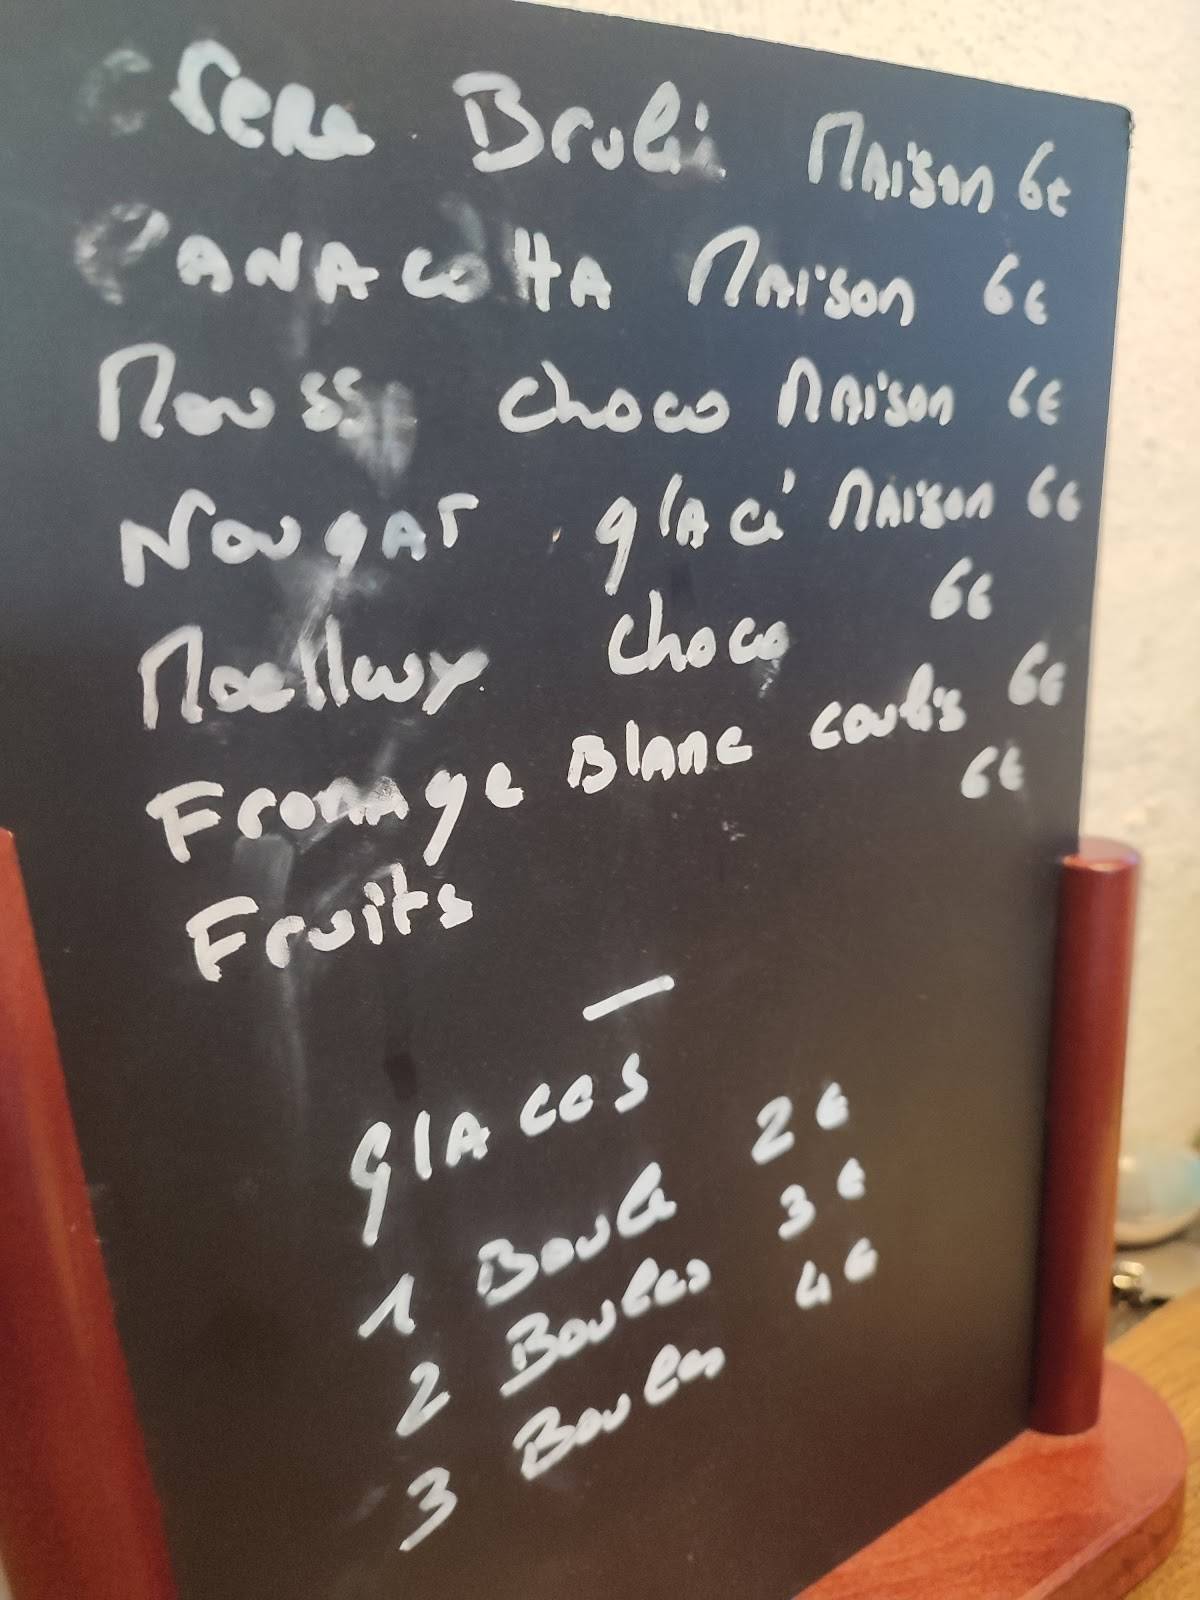 Creme Brulé Maison 6€
PANACOTTA MAison 6€
Mousse choco MAison 6€
NougAT glAcé MAison 6€
Moelleux choco 6€
FromAge BlAnc coulis 6€
Fruits 6€
—
glAces
1 Boule 2€
2 Boules 3€
3 Boules 4€